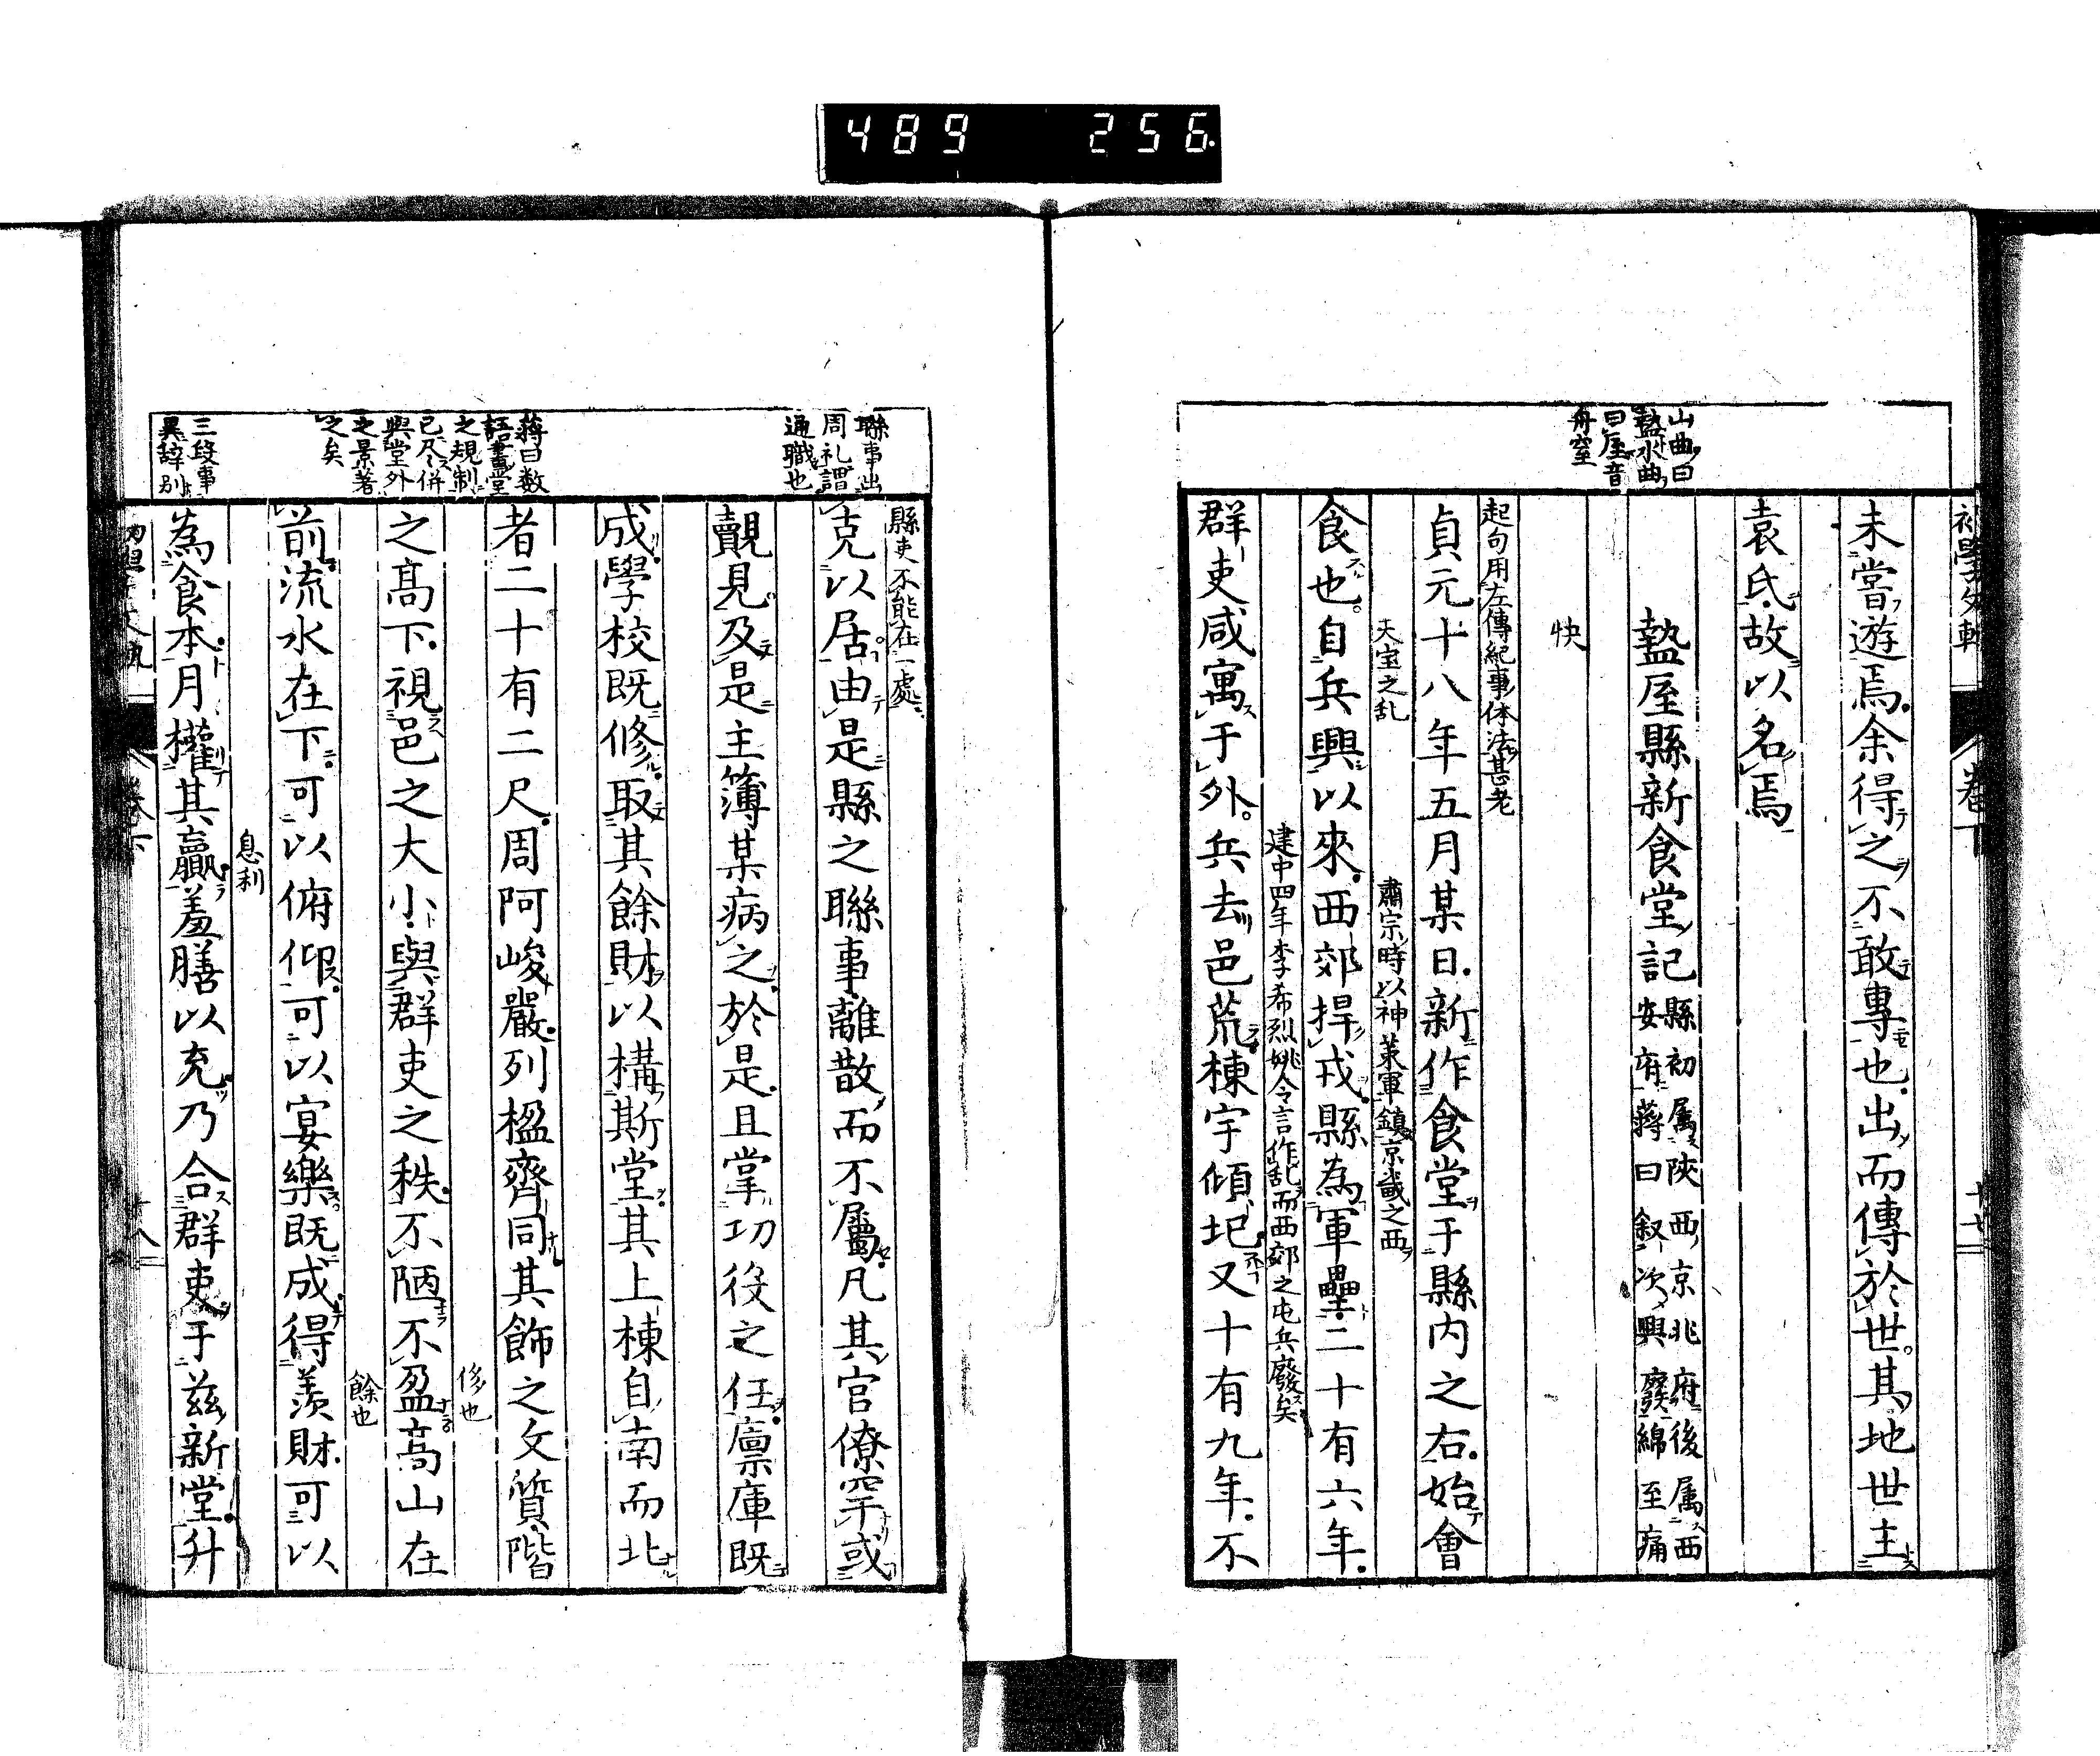 489 256
山曲曰
盩水曲
曰厔音
舟窒
未嘗遊焉余得之不敢專也出而傳於世其地世主
袁氏故以名焉
盩厔縣新食堂記
縣初属陝西京兆府後属西
安府蔣曰叙次興廢綿至痛
快
起句用左傳紀事体法甚老
貞元十八年五月某日新作食堂于縣内之右始會
天宝之乱
肅宗時以神策軍鎮京畿之西
食也自兵興以來西郊捍戎縣為軍壘二十有六年
建中四年李希烈姚令言作乱而西郊之屯兵廢矣
群吏咸寓于外兵去邑荒棟宇傾圮又十有九年不
卷下
十七
聯事出
周礼謂
通職也
蔣曰数
語畫堂
之規制
已尽併
與堂外
之景著
之矣
三段事
異辞别
縣吏不能在一處
克以居由是縣之聯事離散而不屬凡其官僚罕或
覿見及是主簿某病之於是且掌功役之任廪庫既
成學校既修取其餘財以構斯堂其上棟自南而北
者二十有二尺周阿峻嚴列楹齊同其飾之文質階
侈也
之高下視邑之大小與群吏之秩不陋不盈高山在
餘也
前流水在下可以俯仰可以宴樂既成得羨財可以
息利
為食本月權其贏羞膳以充乃合群吏于兹新堂升
卷下
十八